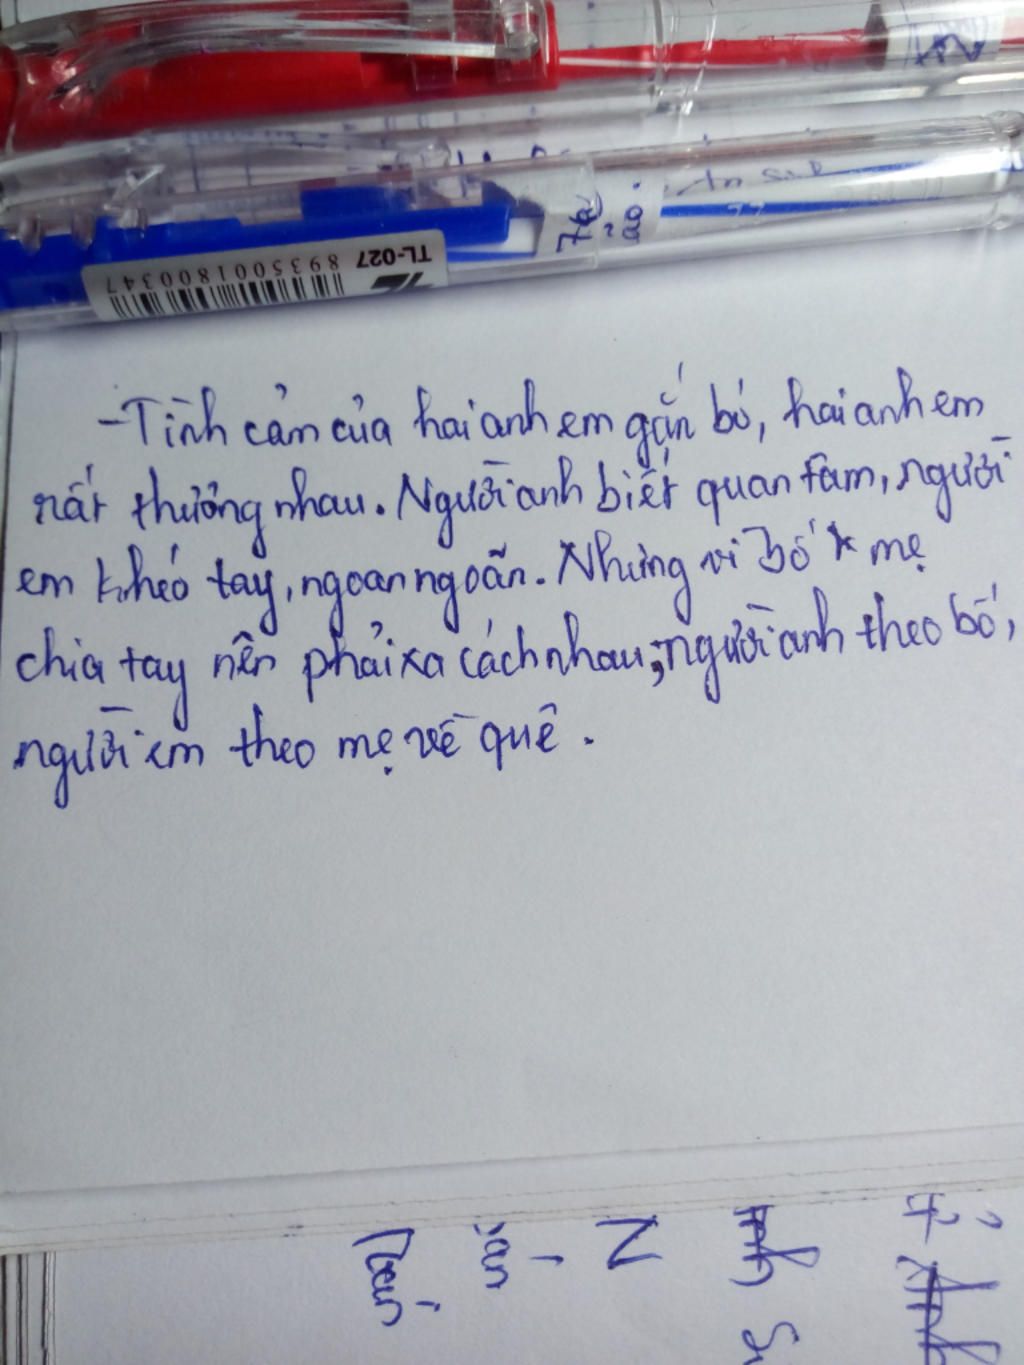 TL-027
8935001800347
-Tình cảm của hai anh em gắn bó, hai anh em
rất thương nhau. Người anh biết quan tâm, người
em khéo tay, ngoan ngoãn. Nhưng vì bố mẹ
chia tay nên phải xa cách nhau; người anh theo bố,
người em theo mẹ về quê.
N